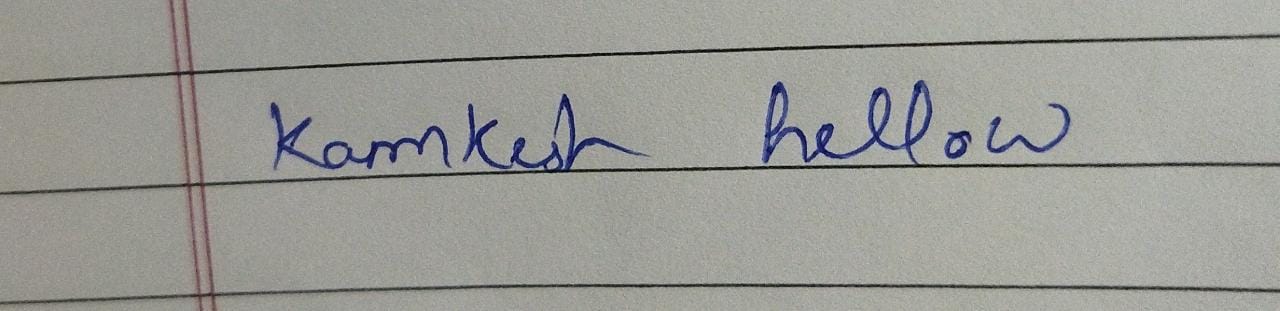 Kamkesh hellow